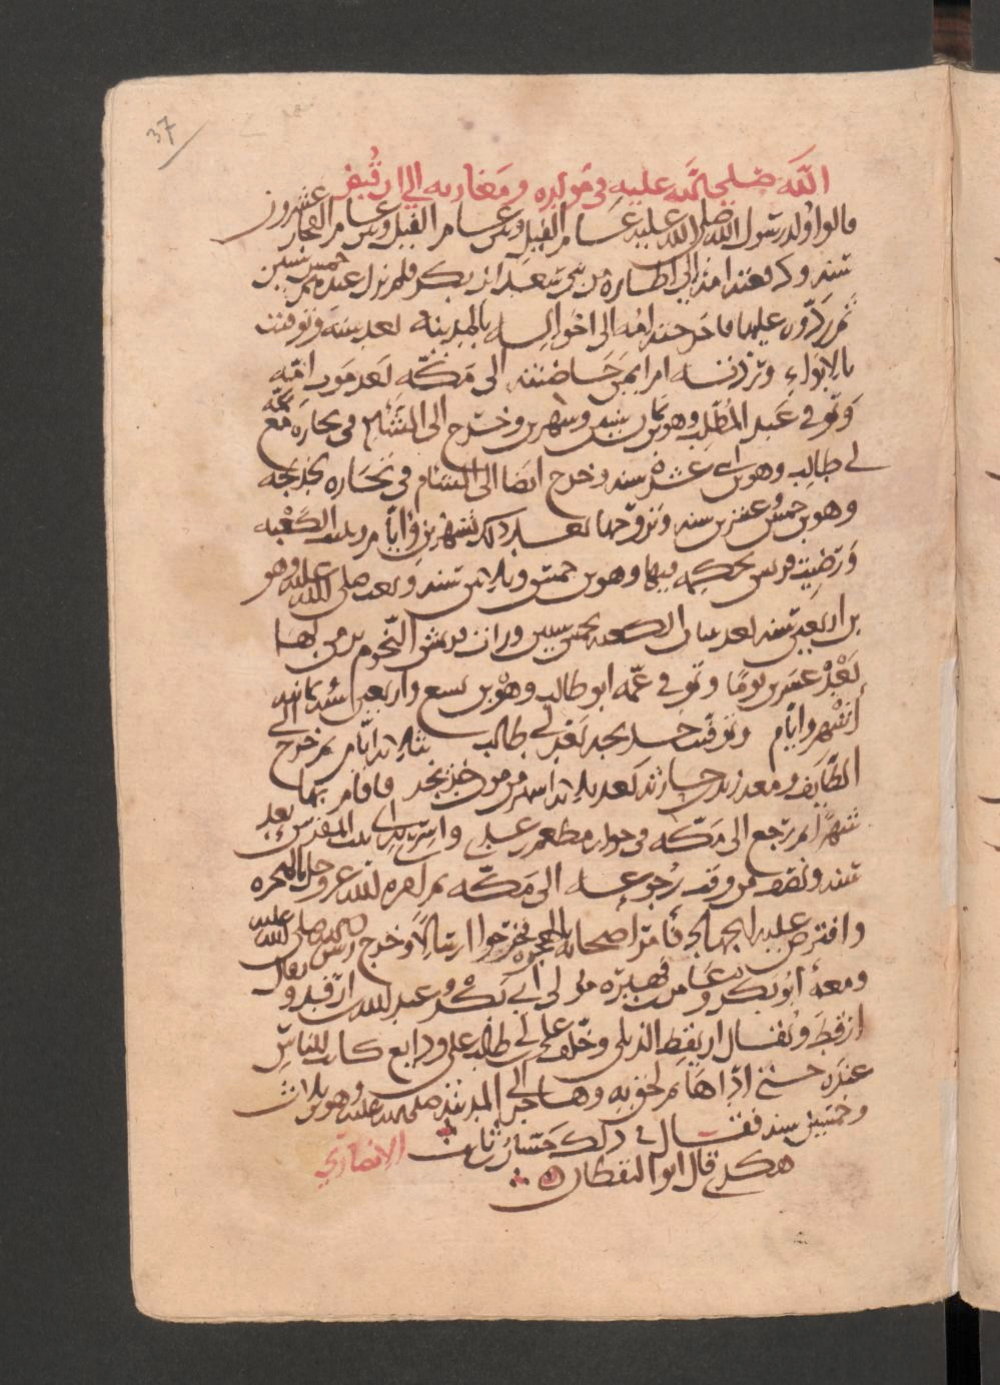 37
الله صلى الله عليه في مولده ومغازيه إلى ان قُبِض
قالوا وُلد رسول الله صلى الله عليه عام الفيل وبين عام الفيل وبين عام الفجار عشرون
سنه ودفعته امه الى اظاره من بني سعد بن بكر فلم يزل عندهم خمس سنين
ثم ردّوه عليها فاخرجته امه الى اخواله بالمدينه بعد سنه وتوفيت
بالابواء وردته ام ايمن حاضنته الى مكّه بعد موت امّه
وتوفي عبد المطلب وهو بن ثمان سنين وشهرين وخرج الى الشام في تجارة مع عمه
ابي طالب وهو بن عشرة سنه وخرج ايضا الى الشام في تجاره لخديجه
وهو بن خمس وعشرين سنه وتزوّجها بعد ذلك بشهرين وايام وبنيت الكعبه
ورَضِيت قريش بحكمه فيها وهو بن خمس وثلاثين سنه وبعث صلى الله عليه وهو
بن اربعين سنه بعد بنيان الكعبه بخمس سنين ورات قريش النّجوم يرمى بها
بعد عشرين يومًا وتوفي عمّه ابو طالب وهو بن تسع واربعين سنه وثمانيه
أشهر وايام وتوفيت خديجه بعد ابي طالب بثلاثه ايام ثم خرج الى
الطايف ومعه زيد بن حارثه بعد ثلاثه اشهر من موت خديجه فاقام بها
شهرًا ثم رجع الى مكّه في جوار مطعم بن عدي واسري به الى بيت المقدس بعد
سنه ونصف من وقت رجوعه الى مكّه ثم امره الله عز وجل بالهجره
وافترض عليه الجهاد فأمر اصحابه بالهجره فخرجوا ارسالًا وخرج رسول الله صلى الله عليه
ومعه أبو بكر وعامر بن فهيره مولى أبي بكر وعبد الله بن ارقد و يقال
ارقط ويقال اريقط الديلي وخلّف علي بن ابي طالب على ودايع كانت للناس
عنده حتى ادّاها ثم لحق به وهاجر الى المدينه صلى الله عليه وهو بن ثلاث
وخمسين سنه فقال في ذلك حسّان بن ثابت الانصاري
هكذي قال ابو اليقظان